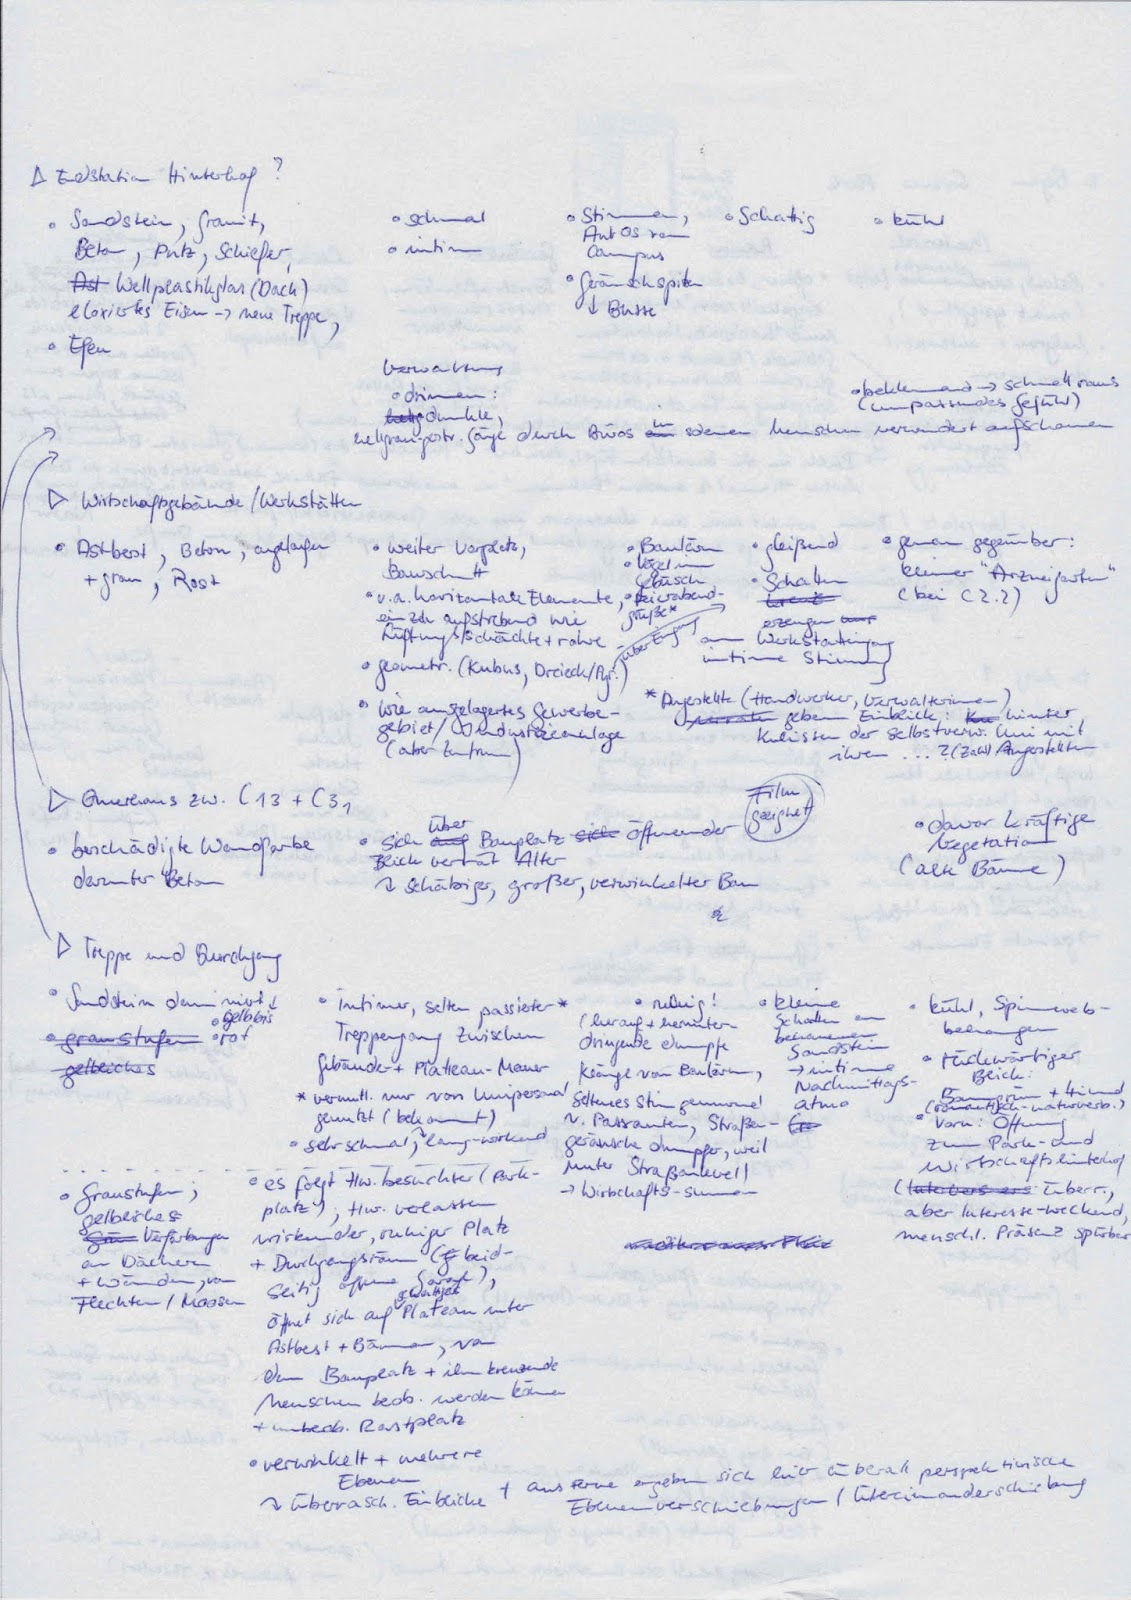 ▷ Endstation Hinterhof?
• Sandstein, Granit,
Beton, Putz, Schiefer,
Ast Wellplastikglas (Dach)
eloxiertes Eisen → neue Treppe,
• Efeu
• schmal
• intim
• Stimmen,
Autos vom
Campus
• Geräuschspitzen
↓ Busse
• Schattig
• kühl
Verwaltung
• drinnen:
dunkle,
hellgraugestr. Gänge durch Büros in denen Menschen verwundert aufschauen
• beklemmend → schnell raus
(unpassendes Gefühl)
▷ Wirtschaftsgebäude/Werkstätten
• Astbest, Beton, angelaufen
+ grau, Rost
• weiter Vorplatz,
Bauschutt
• v.a. horizontale Elemente,
aufstrebend wie
Lüftungsschächte + rohre
• geometr. (Kubus, Dreieck/Pyr.)
• wie ausgelagertes Gewerbe-
gebiet/Industrieanlage
(aber Zentrum)
• Baulärm
• Vögel im
Gebüsch
• Feierabend-
grüße*
über Eingang
• gleißend
• Schatten
erzeugen
am Werkstatteingang
intime Stimmung
• genau gegenüber:
kleiner "Arzneigarten"
(bei C2.2)
* Angestellte (Handwerker, Verwalterinnen)
geben Einblick: hinter
Kulissen der selbstverw. Uni mit
ihren ... ? (Zahl) Angestellten
▷ Querhaus zw. C13 + C3,
• beschädigte Wandfarbe
darunter Beton
• sich über Bauplatz sich öffnender
Blick verrät Alter
↳ schäbiger, großer, verwinkelter Bau
Film
geeignet
• davor kräftige
Vegetation
(alte Bäume)
▷ Treppe und Durchgang
• Sandstein dominiert ↓
• gelb bis
rot
• graustufen
gelbliches
• Intimer, selten passierter*
Treppengang zwischen
Gebäude- + Plateau-Mauer
* vermutl. nur von Unipersonal
genutzt (bekannt)
• sehr schmal, lang-wirkend
• ruhig!
(herauf + herunter
dringende dumpfe
Klänge von Baulärm,
seltenes Stimmengewirr
v. Passanten, Straßen-
geräusche dumpfer, weil
unter Straßenlevel)
→ Wirtschafts-summen
• kleine
Schatten am
Sandstein
→ intime
Nachmittags-
atmo
• kühl, Spinnweb-
behangen
• rückwärtiger
Blick:
Baumgrün + Himmel
(romantisch-naturverb.)
• Vorn: Öffnung
zum Park- und
Wirtschaftshinterhof
(überr.,
aber Interesse-weckend,
menschl. Präsenz spürbar
• Graustufen,
gelbliches
Verfärbungen
an Dächern
+ Wänden, von
Flechten/Moosen
• es folgt Hw. besuchter (Park-
platz), Hw. verlassen
wirkender, ruhiger Platz
+ Durchgangsraum (beid-
seitig offene
öffnet sich auf Plateau unter
Astbest + Bäumen, von
dem Bauplatz + ihn kreuzende
Menschen beob. werden können
+ unbeob. Rastplatz
• verwinkelt + mehrere
Ebenen
↳ überrasch. Einblicke + aus Ferne ergeben sich hier überall perspektivische
Ebenenverschiebungen / Übereinanderschiebung